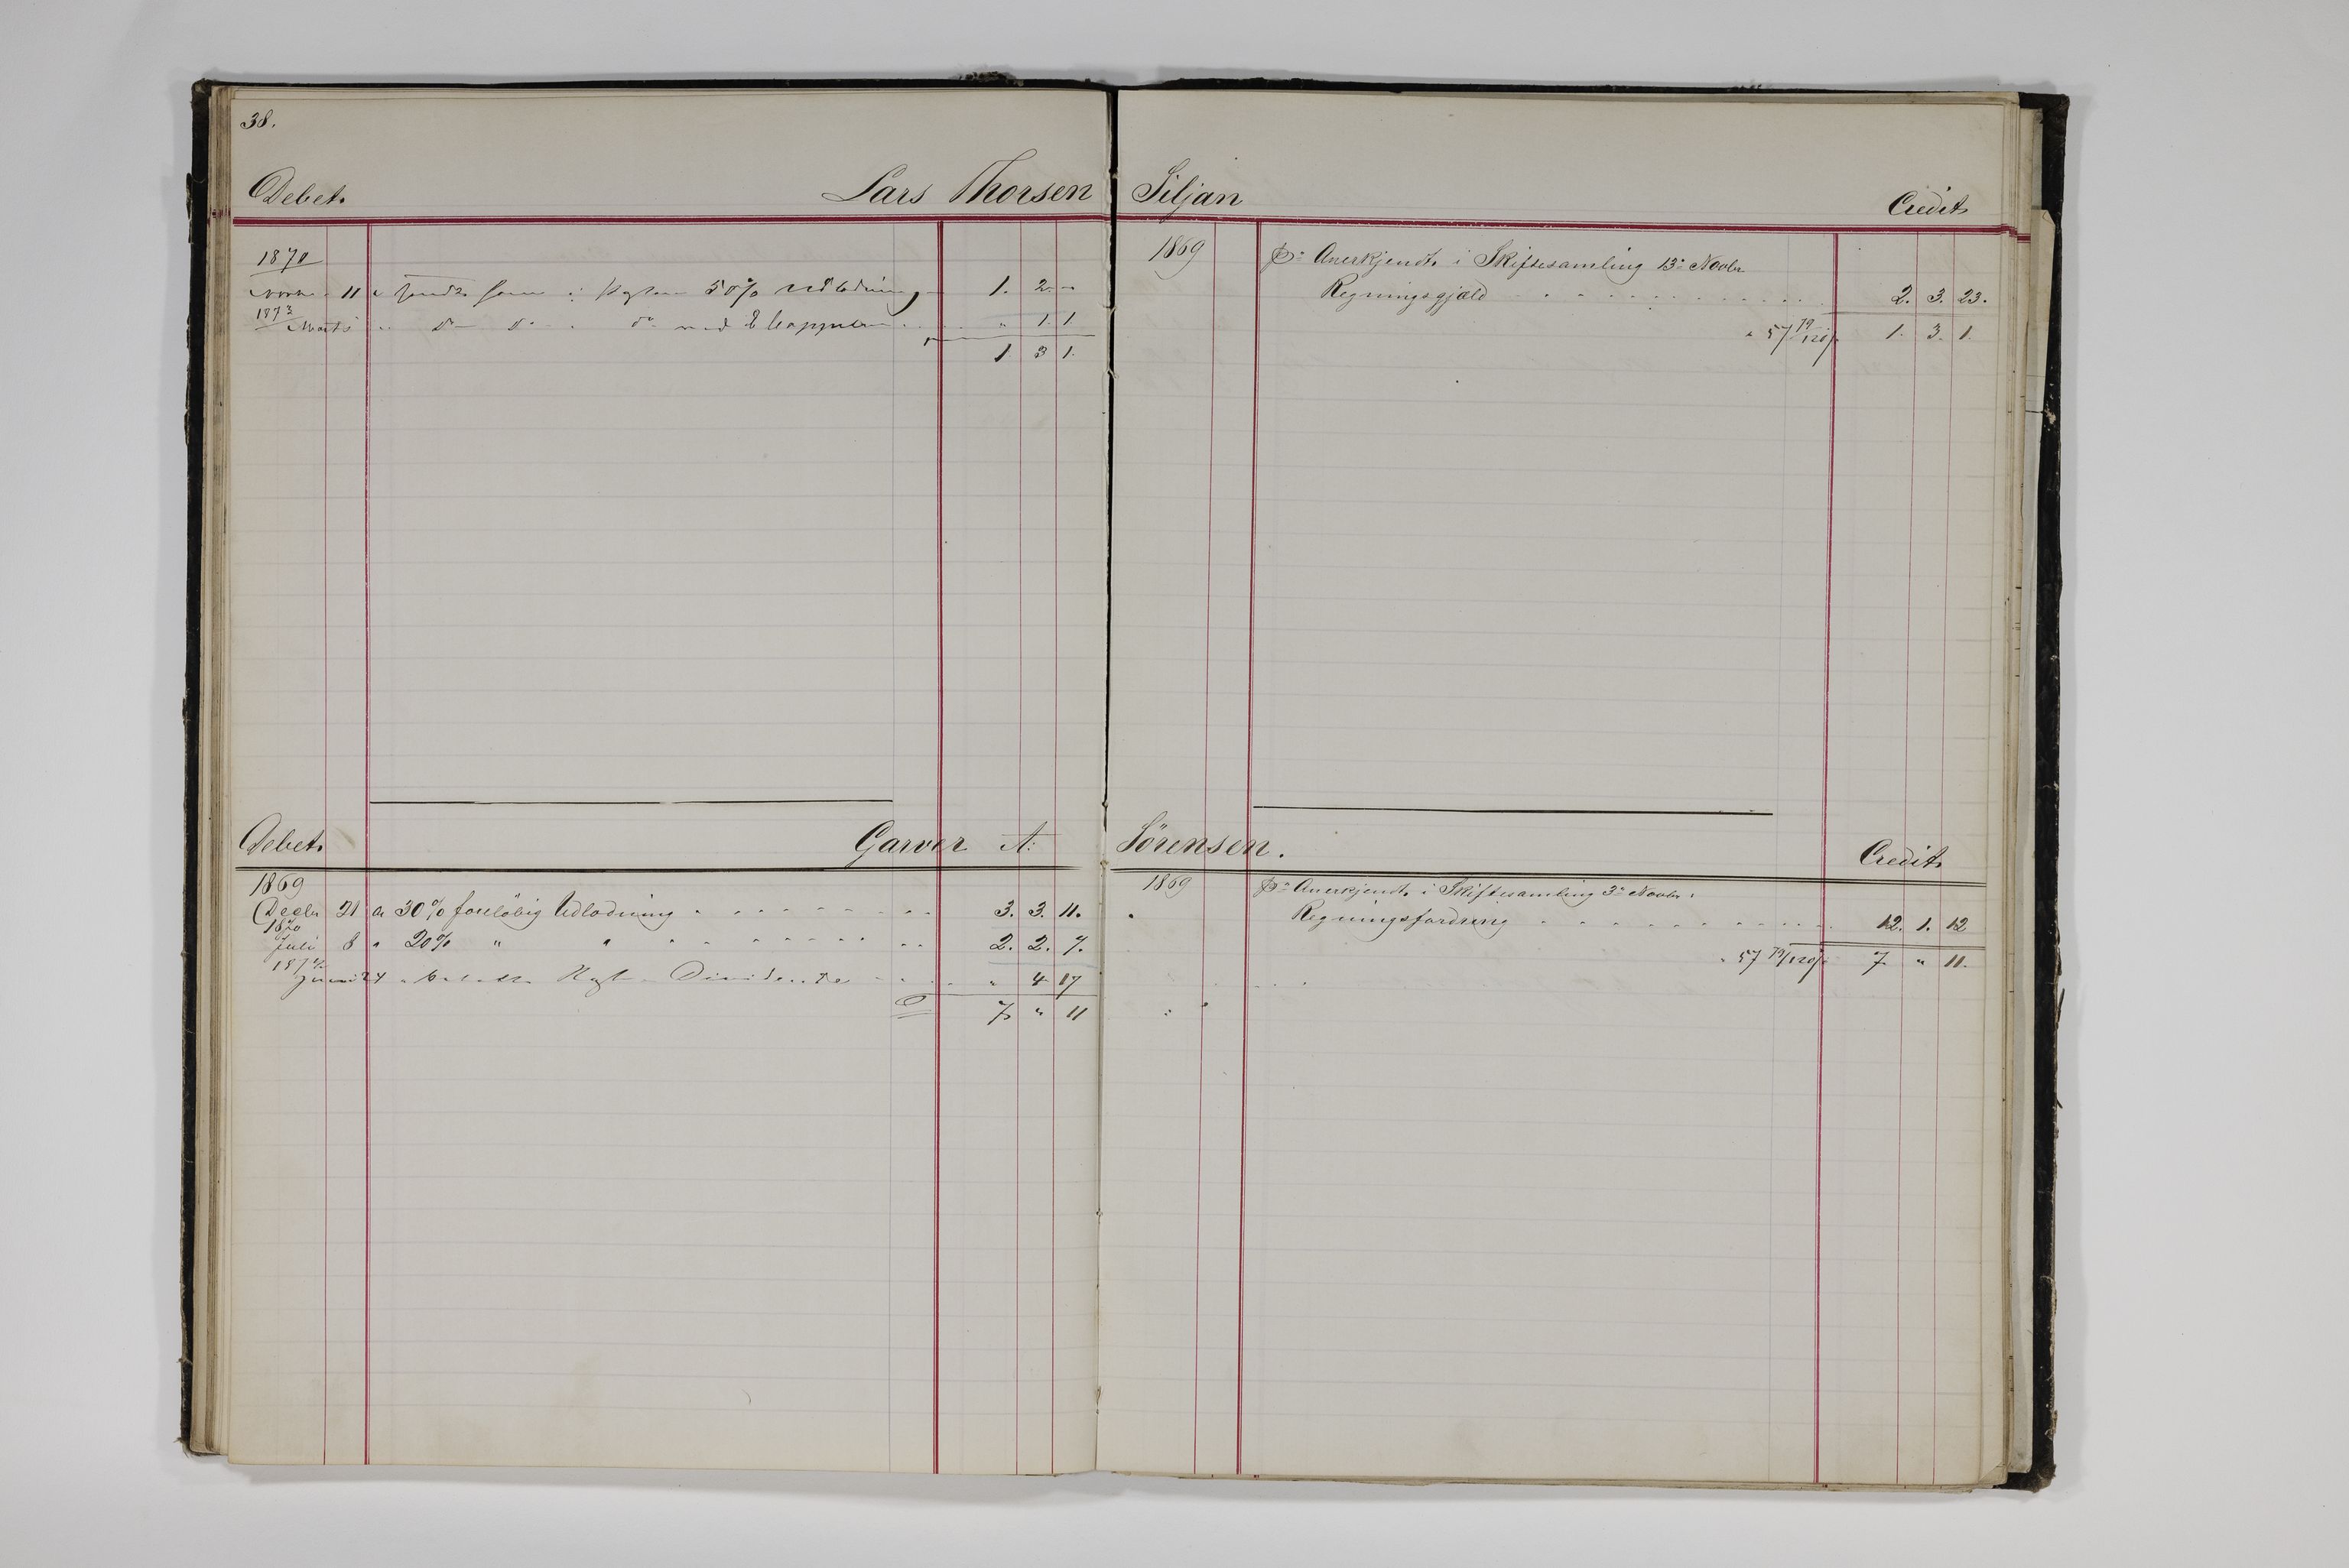 38.
Debet. Lars Thorsen Siljan Credit
1870
Novbr 11 50% Udlodning 1. 2. "
1873
Marts " do do do med " 1. 1.
1 3 1.
1869 pr Anerkjendt i Skiftesamling 13de Novbr
Regningsgjæld 2. 3. 23.
" 57 79/120 1. 3. 1.
Debet. Garver A: Sörensen. Credit
1869
Decbr 21 a 30% foreløbig Udlodning 3. 3. 11.
1870
Juli 8 " 20% " " 2. 2. 7.
Juni 24 Dividende " 4 17
7 " 11
1869 pr Anerkjendt i Skiftesamling 3de Novbr.
Regningsfordring 12. 1. 12
" 57 79/120 7 " 11.